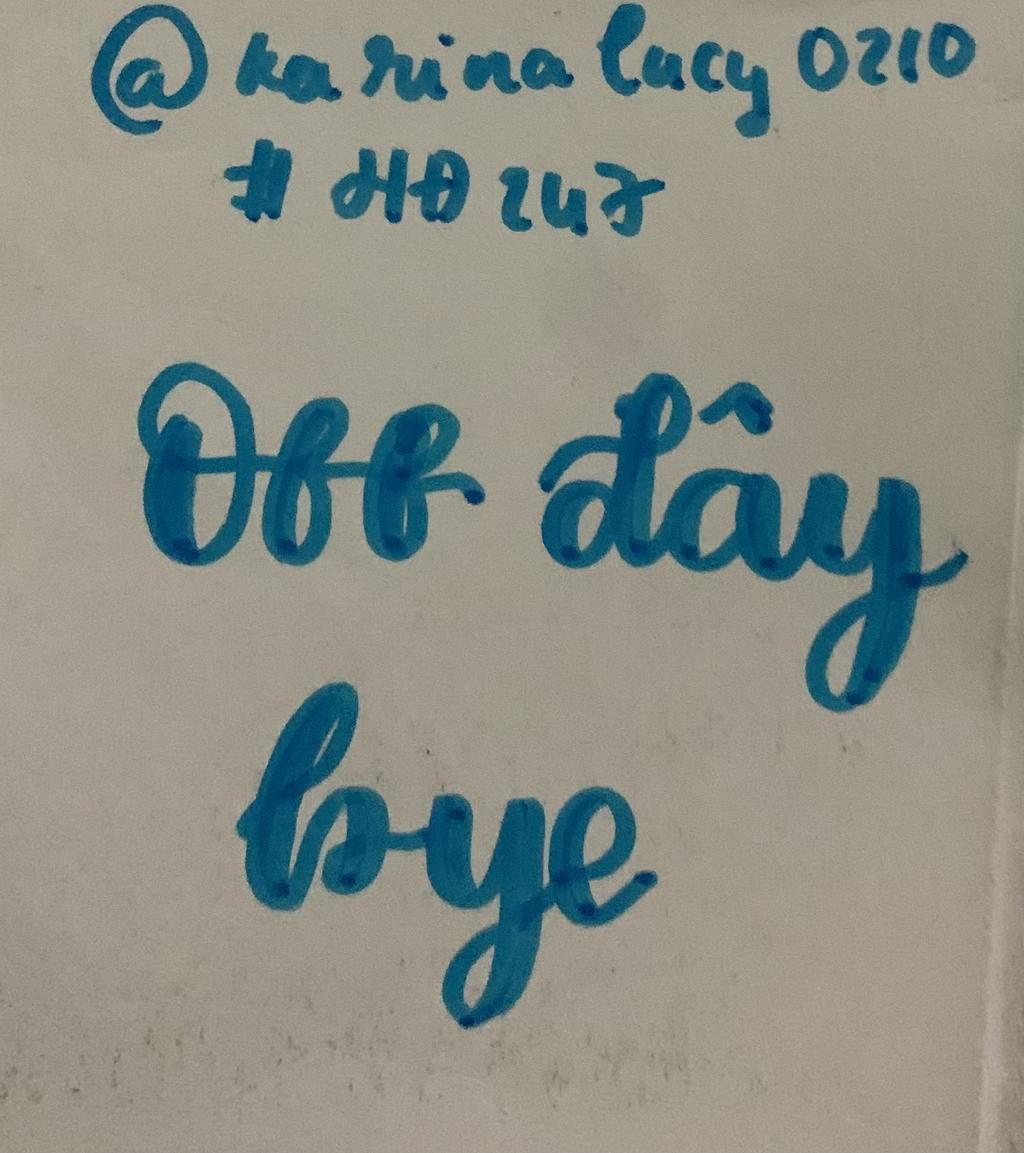 @karinalucy0210
#HĐ247
Off đây
bye